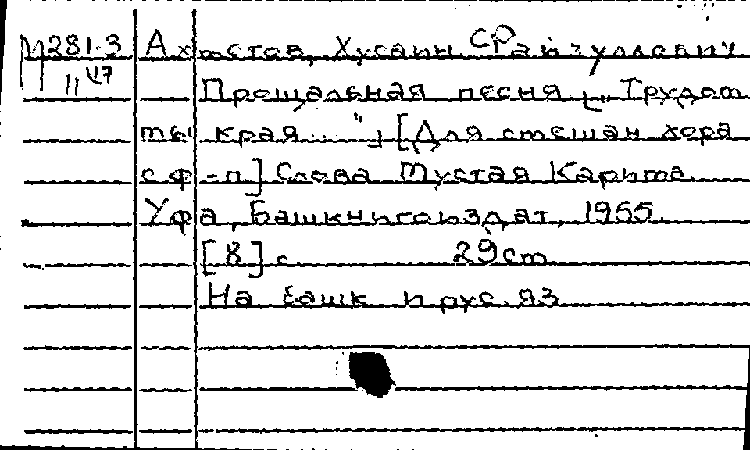 М 281.3 Ахметов, Хусаин Файзуллович
11 47 Прощальная песня [„Трудом
ты края..."] [Для смешан хора
с ф-п] Слова Мустая Карима
Уфа, Башкнигоиздат, 1955.
[8] с 29 см
На башк и рус. яз